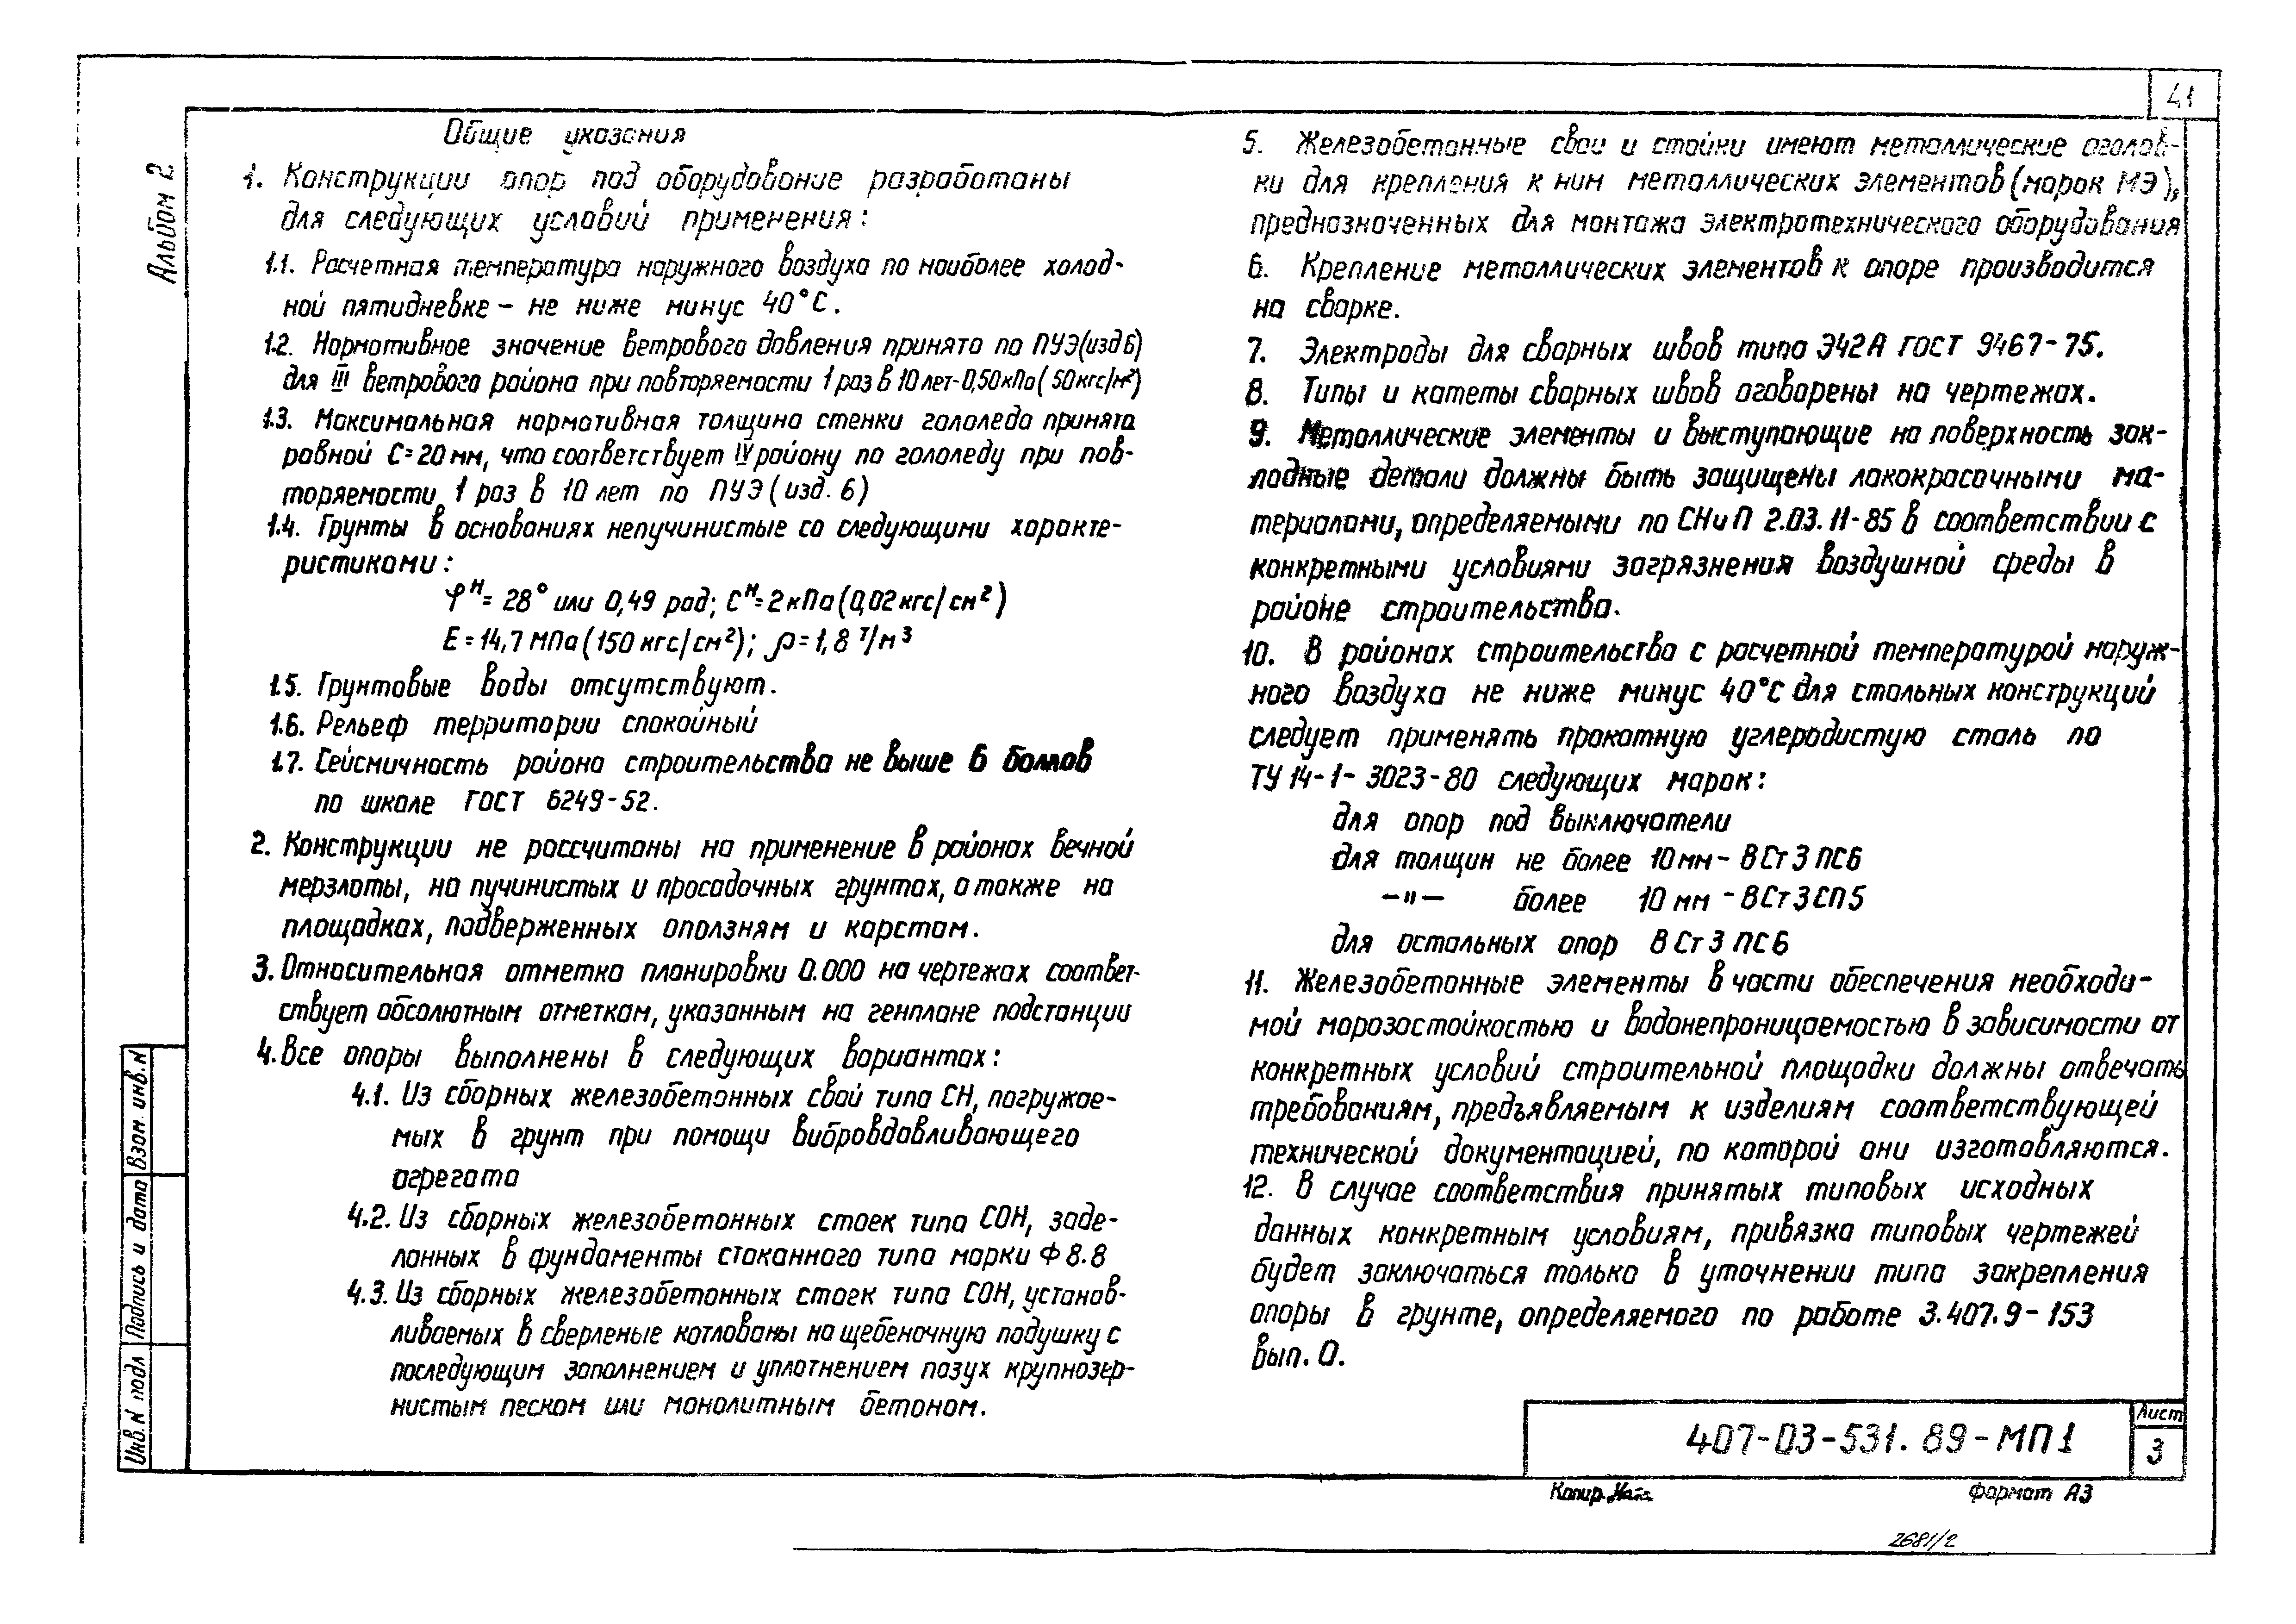 41
Альбом 2
Общие указания
1. Конструкции опор под оборудование разработаны
для следующих условий применения:
1.1. Расчетная температура наружного воздуха по наиболее холод-
ной пятидневке – не ниже минус 40°С.
1.2. Нормативное значение ветрового давления принято по ПУЭ(изд6)
для III ветрового района при повторяемости 1 раз в 10 лет-0,50кПа(50кгс/м²)
1.3. Максимальная нормативная толщина стенки гололеда принята
равной С=20мм, что соответствует IV району по гололеду при пов-
торяемости 1 раз в 10 лет по ПУЭ(изд. 6)
1.4. Грунты в основаниях непучинистые со следующими характе-
ристиками:
φᴴ= 28° или 0,49 рад; Сᴴ=2кПа(0,02кгс/см²)
Е=14,7МПа(150кгс/см²); ρ=1,8 т/м³
1.5. Грунтовые воды отсутствуют.
1.6. Рельеф территории спокойный
1.7. Сейсмичность района строительства не выше 6 баллов
по шкале ГОСТ 6249-52.
2. Конструкции не рассчитаны на применение в районах вечной
мерзлоты, на пучинистых и просадочных грунтах, а также на
площадках, подверженных оползням и карстам.
3. Относительная отметка планировки 0.000 на чертежах соответ-
ствует абсолютным отметкам, указанным на генплане подстанции
4. Все опоры выполнены в следующих вариантах:
4.1. Из сборных железобетонных свай типа СН, погружае-
мых в грунт при помощи вибровдавливающего
агрегата
4.2. Из сборных железобетонных стоек типа СОН, заде-
ланных в фундаменты стаканного типа марки Ф8.8
4.3. Из сборных железобетонных стоек типа СОН, установ-
ливаемых в сверленые котлованы на щебеночную подушку с
последующим заполнением и уплотнением пазух крупнозер-
нистым песком или монолитным бетоном.
5. Железобетонные сваи и стойки имеют металлические оголов-
ки для крепления к ним металлических элементов(марок МЭ),
предназначенных для монтажа электротехнического оборудования
6. Крепление металлических элементов к опоре производится
на сварке.
7. Электроды для сварных швов типа Э42А ГОСТ 9467-75.
8. Типы и катеты сварных швов оговорены на чертежах.
9. Металлические элементы и выступающие на поверхность зак-
ладные детали должны быть защищены лакокрасочными ма-
териалами, определяемыми по СНиП 2.03.11-85 в соответствии с
конкретными условиями загрязнения воздушной среды в
районе строительства.
10. В районах строительства с расчетной температурой наруж-
ного воздуха не ниже минус 40°С для стальных конструкций
следует применять прокатную углеродистую сталь по
ТУ 14-1-3023-80 следующих марок:
для опор под выключатели
для толщин не более 10мм- ВСт3ПС6
—"— более 10 мм - ВСт3СП5
для остальных опор ВСт3ПС6
11. Железобетонные элементы в части обеспечения необходи-
мой морозостойкостью и водонепроницаемостью в зависимости от
конкретных условий строительной площадки должны отвечать
требованиям, предъявляемым к изделиям соответствующей
технической документацией, по которой они изготовляются.
12. В случае соответствия принятых типовых исходных
данных конкретным условиям, привязка типовых чертежей
будет заключаться только в уточнении типа закрепления
опоры в грунте, определяемого по работе 3.407.9-153
вып.0.
Взам. инв. N
Подпись и дата
Инв. N подл
407-03-531.89-МП1
Лист
3
Копир.
Формат А3
2681/2